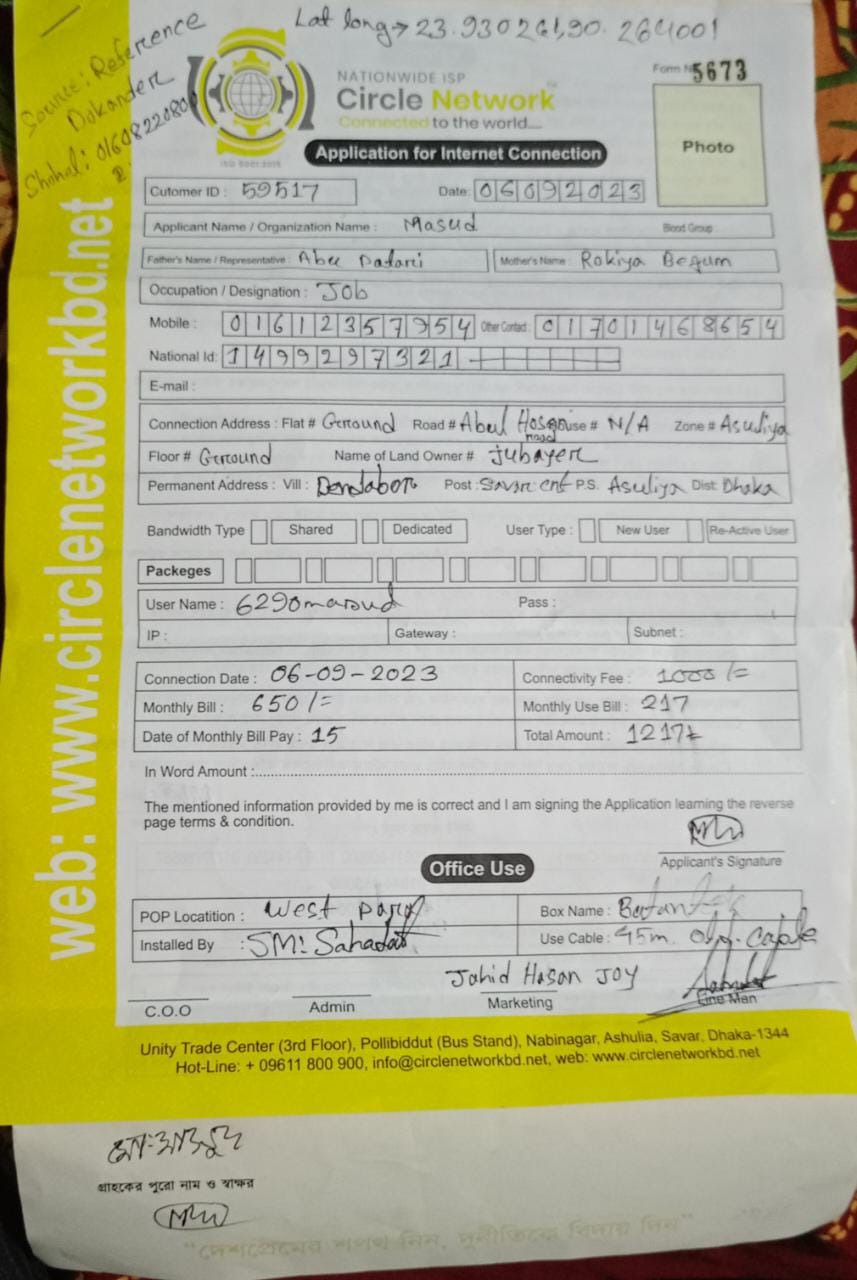 Lat long→ 23.930261,90.264001
Source: Reference
Dokander
Shohal: 01608220800
2.
NATIONWIDE ISP
Circle Network
Connected to the world....
ISO 9001:2015
Form N 5673
Photo
Application for Internet Connection
Cutomer ID : 59517 Date: 06092023
Applicant Name / Organization Name : Masud Blood Group :
Father's Name / Representative : Abu Dadari Mother's Name : Rokiya Begum
Occupation / Designation : Job
Mobile : 01612357954 Other Contact : 01701468654
National Id: 1499297321
E-mail :
Connection Address : Flat # Geround Road # Abul Hos road House # N/A Zone # Asuliya
Floor # Geround Name of Land Owner # Jubayer
Permanent Address : Vill : Dendabor Post : Savar cnt P.S. Asuliya Dist: Dhaka
Bandwidth Type Shared Dedicated User Type : New User Re-Active User
Packeges
User Name : 6290masud Pass :
IP : Gateway : Subnet :
Connection Date : 06-09-2023 Connectivity Fee : 1000/=
Monthly Bill : 650/= Monthly Use Bill : 217
Date of Monthly Bill Pay : 15 Total Amount : 1217
In Word Amount :
The mentioned information provided by me is correct and I am signing the Application learning the reverse
page terms & condition.
Applicant's Signature
Office Use
POP Locatition : West para Box Name :
Installed By : SM: Sahadat Use Cable : 45m.
Jahid Hasan JOY
C.O.O Admin Marketing Line Man
Unity Trade Center (3rd Floor), Pollibiddut (Bus Stand), Nabinagar, Ashulia, Savar, Dhaka-1344
Hot-Line: + 09611 800 900, info@circlenetworkbd.net, web: www.circlenetworkbd.net
web: www.circlenetworkbd.net
মো: মাসুদ
গ্রাহকের পুরো নাম ও স্বাক্ষর
"দেশপ্রেমের শপথ নিন, দুর্নীতিকে বিদায় দিন"